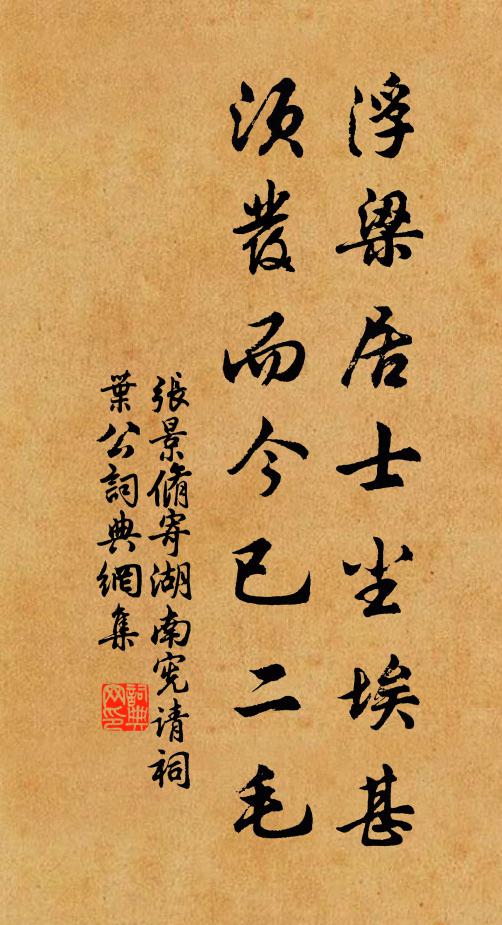 浮梁居士尘埃甚
须发而今已二毛
張景脩寄湖南宪请祠
葉公詞典網集
詞典网印